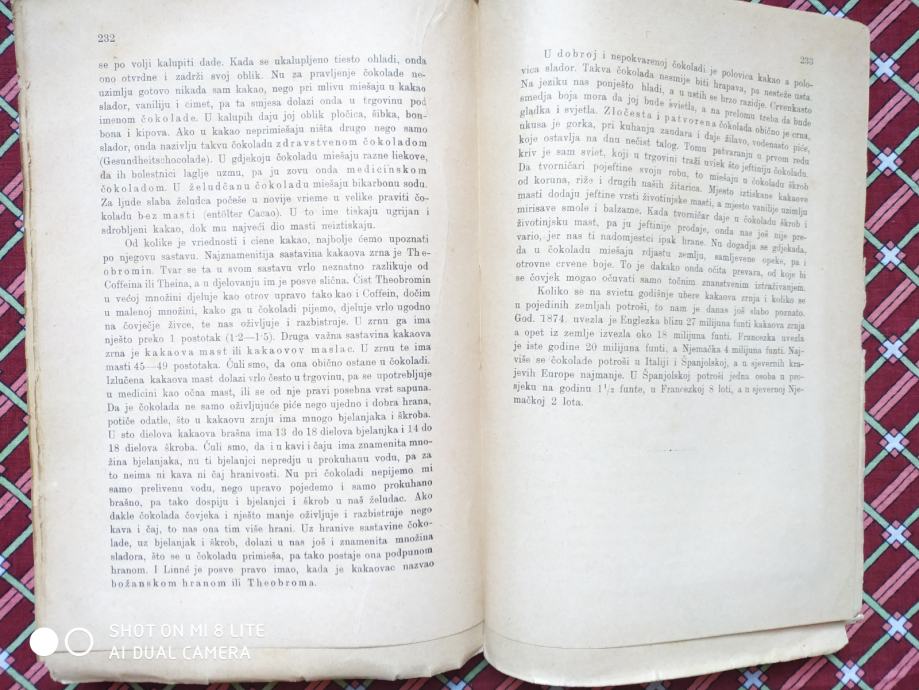 232
se po volji kalupiti dade. Kada se ukalupljeno tiesto ohladi, onda
ono otvrdne i zadrži svoj oblik. Nu za pravljenje čokolade ne-
uzimlju gotovo nikada sam kakao, nego pri mlivu miešaju u kakao
slador, vaniliju i cimet, pa ta smjesa dolazi onda u trgovinu pod
imenom čokolade. U kalupih daju joj oblik pločica, šibka, bon-
bona i kipova. Ako u kakao neprimiešaju ništa drugo nego samo
slador, onda nazivlju takvu čokoladu zdravstvenom čokoladom
(Gesundheitschocolade). U gdjekoju čokoladu miešaju razne liekove,
da ih bolestnici laglje uzmu, pa ju zovu onda medicinskom
čokoladom. U želudčanu čokoladu miešaju bikarbonu sodu.
Za ljude slaba želudca počeše u novije vrieme u velike praviti čo-
koladu bez masti (entölter Cacao). U to ime tiskaju ugrijan i
sdrobljeni kakao, dok mu najveći dio masti neiztiskaju.
Od kolike je vriednosti i ciene kakao, najbolje ćemo upoznati
po njegovu sastavu. Najznamenitija sastavina kakaova zrna je The-
obromin. Tvar se ta u svom sastavu vrlo neznatno razlikuje od
Coffeina ili Theina, a u djelovanju im je posve slična. Čist Theobromin
u većoj množini djeluje kao otrov upravo tako kao i Coffein, dočim
u malenoj množini, kako ga u čokoladi pijemo, djeluje vrlo ugodno
na čovječje živce, te nas oživljuje i razbistruje. U zrnu ga ima
nješto preko 1 postotak (1·2—1·5). Druga važna sastavina kakaova
zrna je kakaova mast ili kakaovov maslac. U zrnu te ima
masti 45—49 postotaka. Čuli smo, da ona obično ostane u čokoladi.
Izlučena kakaova mast dolazi vrlo često u trgovinu, pa se upotrebljuje
u medicini kao očna mast, ili se od nje pravi posebna vrst sapuna.
Da je čokolada ne samo oživljujuće piće nego ujedno i dobra hrana,
potiče odatle, što u kakaovu zrnju ima mnogo bjelanjaka i škroba.
U sto dielova kakaova brašna ima 13 do 18 dielova bjelanjka i 14 do
18 dielova škroba. Čuli smo, da i u kavi i čaju ima znamenita mno-
žina bjelanjaka, nu ti bjelanjci nepredju u prokuhanu vodu, pa za
to neima ni kava ni čaj hranivosti. Nu pri čokoladi nepijemo mi
samo prelivenu vodu, nego upravo pojedemo i samo prokuhano
brašno, pa tako dospiju i bjelanjci i škrob u naš želudac. Ako
dakle čokolada čovjeka i nješto manje oživljuje i razbistruje nego
kava i čaj, to nas ona tim više hrani. Uz hranive sastavine čoko-
lade, uz bjelanjak i škrob, dolazi u nas još i znamenita množina
sladora, što se u čokoladu primieša, pa tako postaje ona podpunom
hranom. I Linné je posve pravo imao, kada je kakaovac nazvao
božanskom hranom ili Theobroma.
233
U dobroj i nepokvarenoj čokoladi je polovica kakao a polo-
vica slador. Takva čokolada nesmije biti hrapava, pa nesteže usta.
Na jeziku nas ponješto hladi, a u ustih se brzo razidje. Crvenkasto
smedja boja mora da joj bude svietla, a na prelomu treba da bude
gladka i svjetla. Zločesta i patvorena čokolada obično je crna,
ukusa je gorka, pri kuhanju zaudara i daje žilavo, vodenasto piće,
koje ostavlja na dnu nečist talog. Tomu patvaranju u prvom redu
kriv je sam sviet, koji u trgovini traži uviek što jeftiniju čokoladu.
Da tvorničari pojeftine svoju robu, to miešaju u čokoladu škrob
od koruna, riže i drugih naših žitarica. Mjesto iztiskane kakaove
masti dodaju jeftine vrsti životinjske masti, a mjesto vanilije uzimlju
mirisave smole i balzame. Kada tvorničar daje u čokoladu škrob i
životinjsku mast, pa ju jeftinije prodaje, onda nas još nije pre-
vario, jer nas ti nadomjestci ipak hrane. Nu dogadja se gdjekada,
da u čokoladu miešaju rdjastu zemlju, samljevene opeke, pa i
otrovne crvene boje. To je dakako onda očita prevara, od koje bi
se čovjek mogao očuvati samo točnim znanstvenim iztraživanjem.
Koliko se na svietu godišnje ubere kakaova zrnja i koliko se
u pojedinih zemljah potroši, to nam je danas još slabo poznato.
God. 1874. uvezla je Englezka blizu 27 milijuna funti kakaova zrnja
a opet iz zemlje izvezla oko 18 milijuna funti. Francezka uvezla
je iste godine 20 milijuna funti, a Njemačka 4 milijuna funti. Naj-
više se čokolade potroši u Italiji i Španjolskoj, a u sjevernih kra-
jevih Europe najmanje. U Španjolskoj potroši jedna osoba u pro-
sjeku na godinu 1½ funte, u Francezkoj 8 loti, a u sjevernoj Nje-
mačkoj 2 lota.
SHOT ON MI 8 LITE
AI DUAL CAMERA